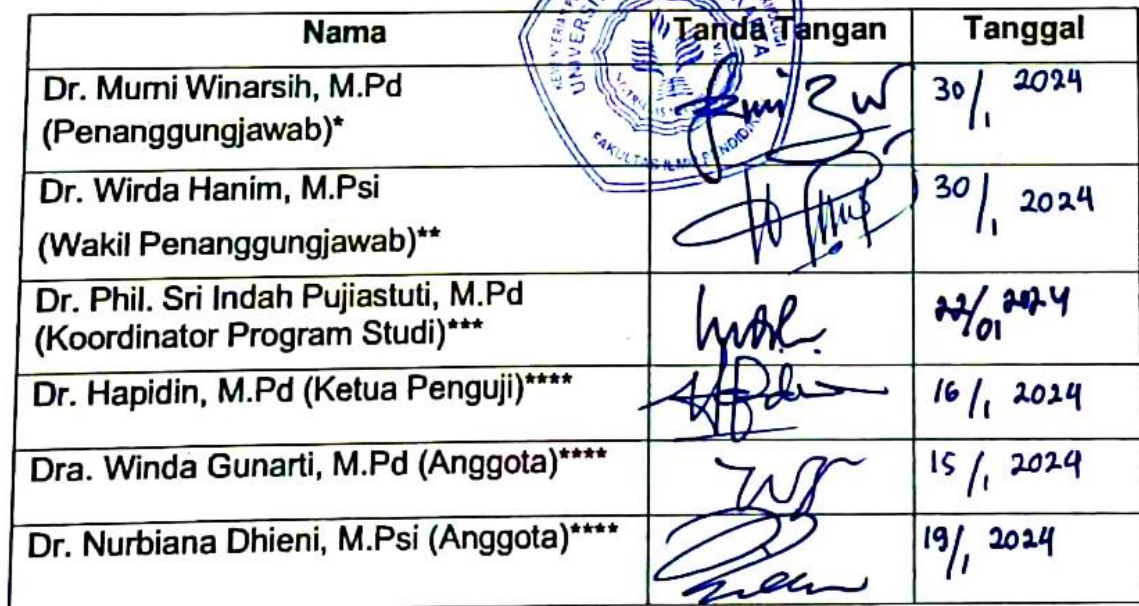 Nama Tanda Tangan Tanggal
Dr. Murni Winarsih, M.Pd
(Penanggungjawab)* 30/1 2024
Dr. Wirda Hanim, M.Psi
(Wakil Penanggungjawab)** 30/1 2024
Dr. Phil. Sri Indah Pujiastuti, M.Pd
(Koordinator Program Studi)*** 22/01 2024
Dr. Hapidin, M.Pd (Ketua Penguji)**** 16/1 2024
Dra. Winda Gunarti, M.Pd (Anggota)**** 15/1 2024
Dr. Nurbiana Dhieni, M.Psi (Anggota)**** 19/1 2024
FAKULTAS ILMU PENDIDIKAN